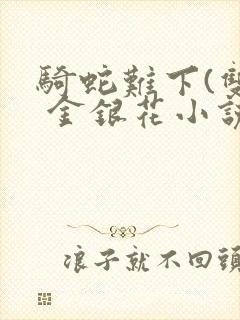 騎蛇難下(雙
金銀花小説
浪子就不回頭